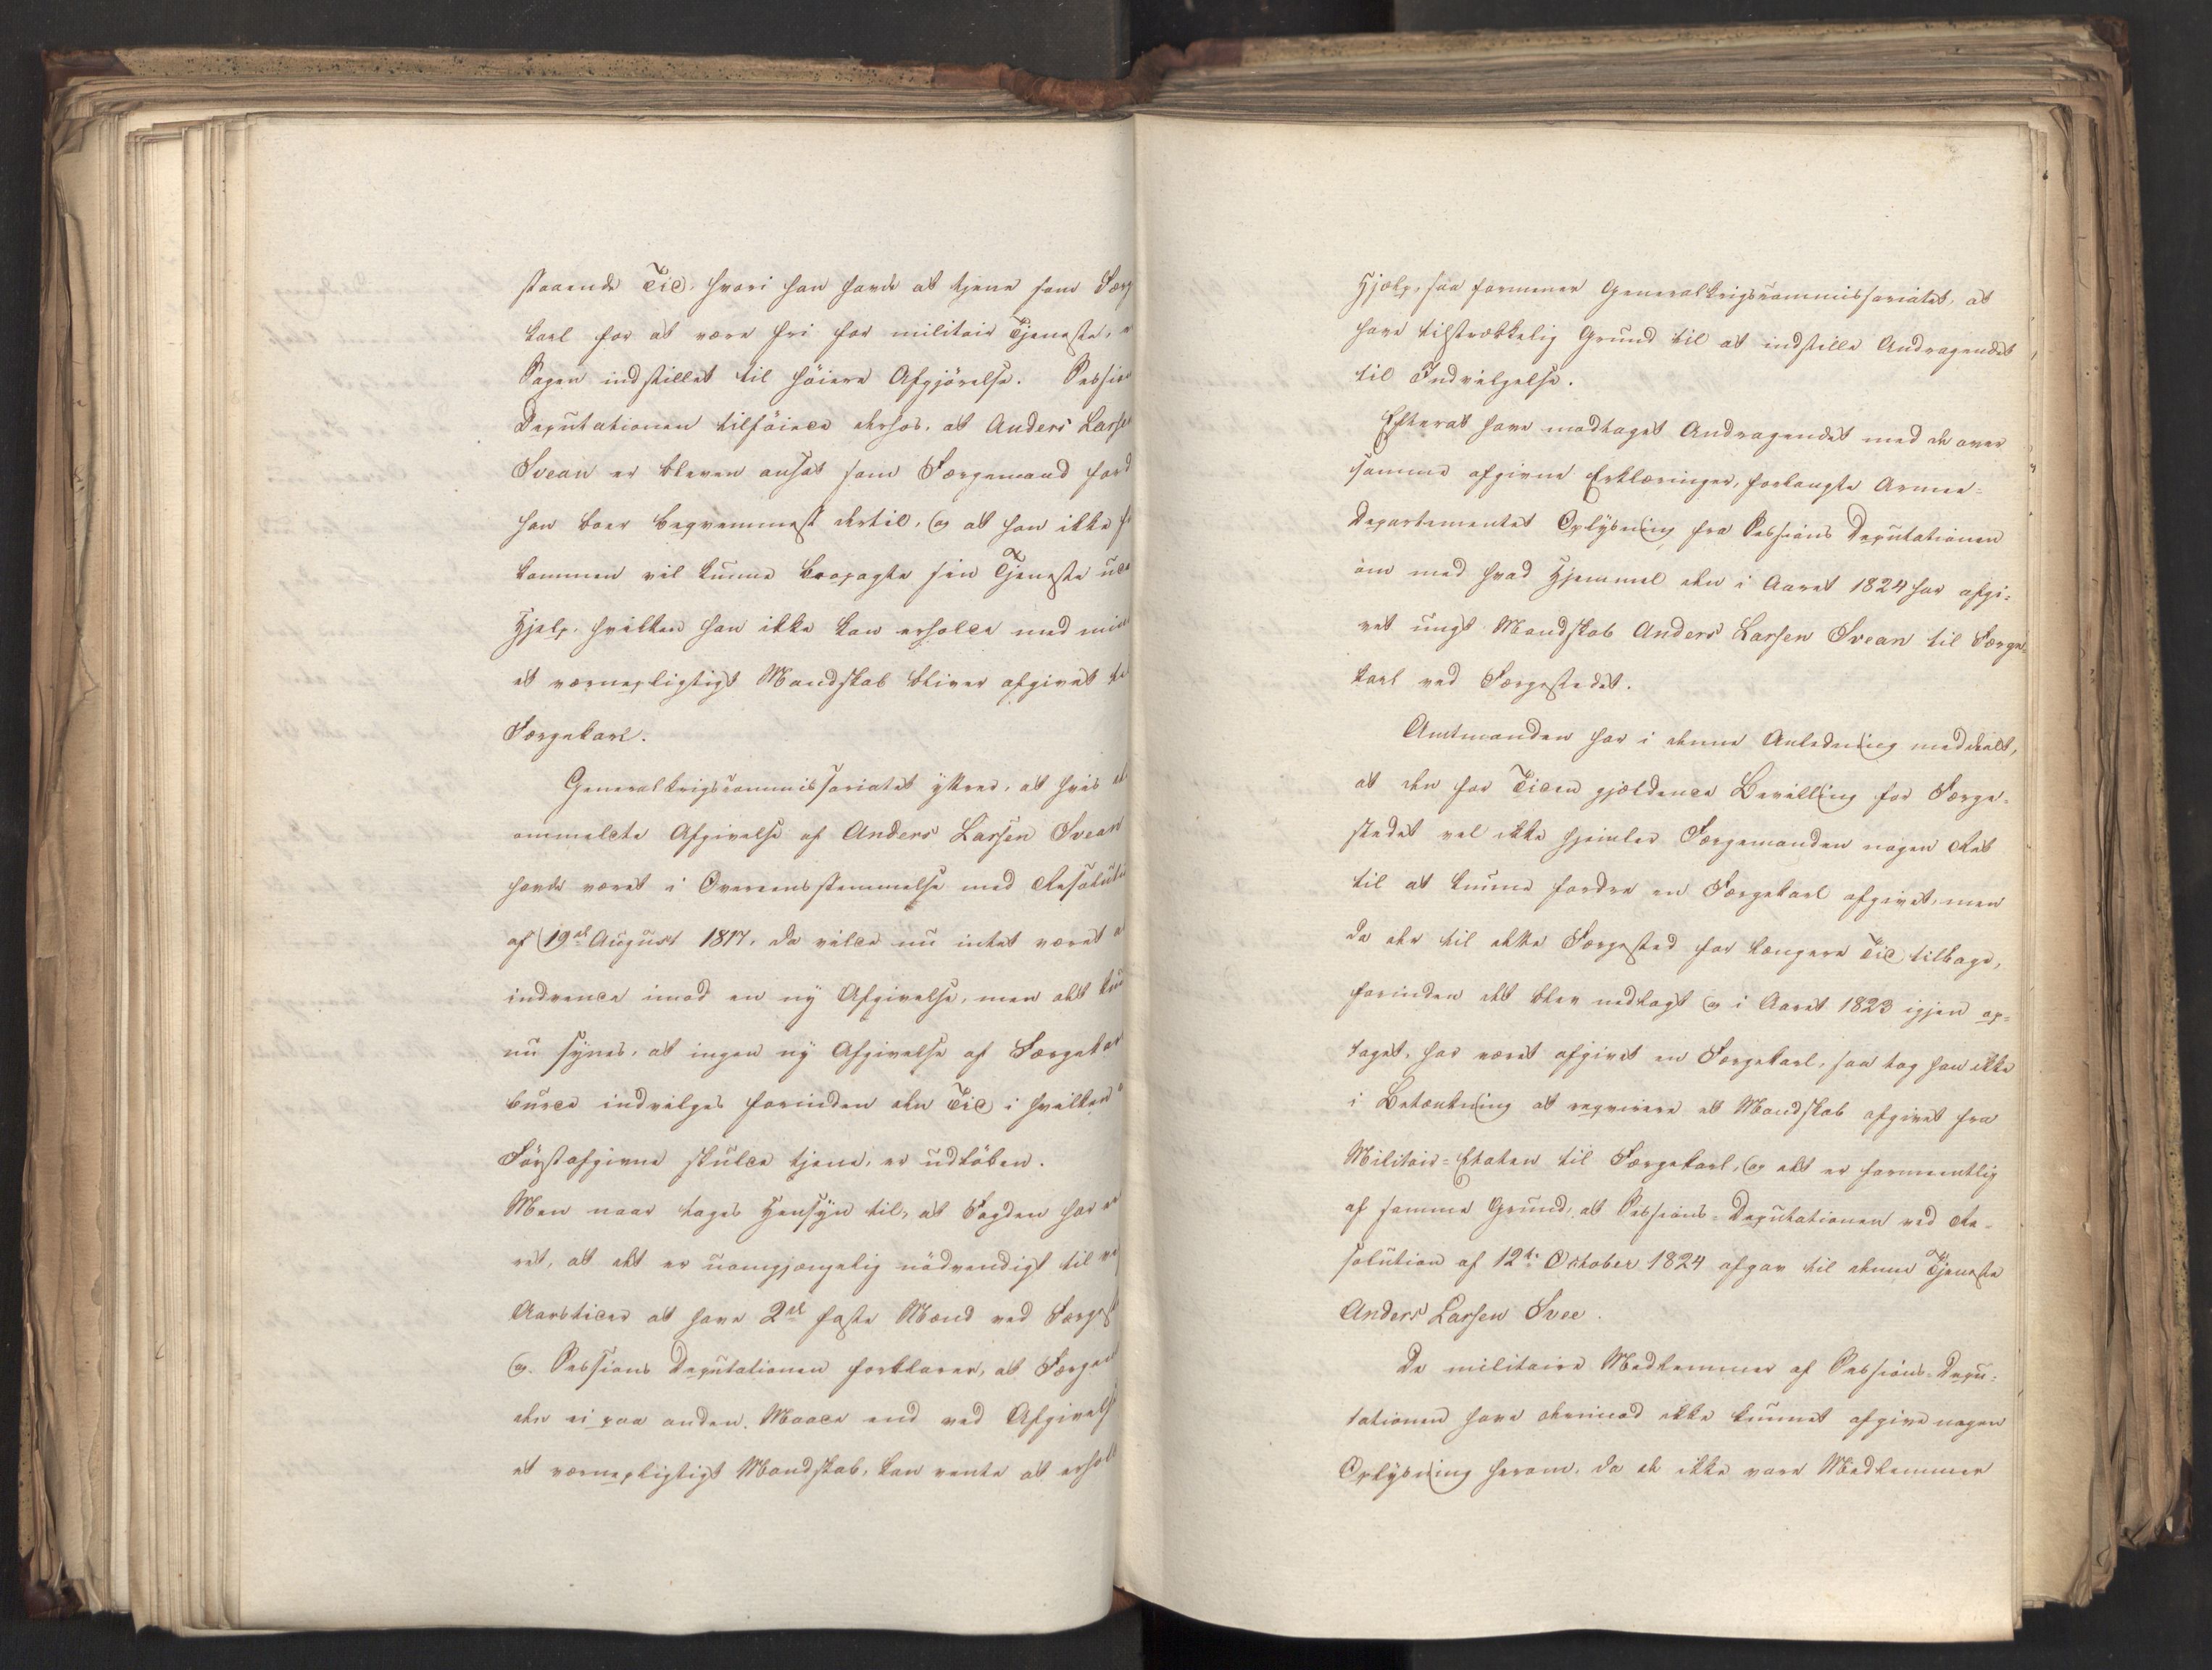 staaende Tid, hvori han havde at tjene som Færge
karl for at være fri for militair Tjeneste, er
Sagen indstillet til höiere Afgjörelse. Session
Deputationen tilföiede derhos, at Anders Larse
Svean er bleven ansat som Færgemand ford
han boer beqvemmest dertil, og at han ikke
kommen vil kunne besopagte sin Tjeneste ude
Hjelp, hvilken han ikke kan erholde med min
et værnepligtigt Mandskab bliver afgivet til
Færgekarl.
Generalkrigscommissariatet yttrer, at hvis
ommeldte Afgivelse af Anders Larsen Svean
havde været i Overeensstemmelse med Resoluti
af 19de August 1817, da vilde nu intet været a
indvende imod en ny Afgivelse, men det kun
nu synes, at ingen ny Afgivelse af Færgekar
burde indvilges forinden den Tid i hvilken
Förstafgivne skulde tjene, er udlöben.
Men naar tages Hensyn til, at Fogden har er
ret, at det er uomgjængelig nödvendigt til
Aarstider at have 2de faste Mænd ved Færgest
og Sessions Deputationen forklarer, at Færgem
der ei paa anden Maade end ved Afgivelse
et værnepligtigt Mandskab, kan vente at erhold
Hjælp, saa formener Generalkrigscommissariatet, at
have tilstrækkelig Grund til at indstille Andragendet
til Indvilgelse.
Efterat have modtaget Andragendet med de over
samme afgivne Erklæringer, forlangte Armee=
Departementet Oplysning fra Sessions Deputationen
om med hvad Hjemmel den i Aaret 1824 har afgi=
vet ungt Mandskab Anders Larsen Svean til Færge=
karl ved Færgestedet.
Amtmanden har i denne Anledning meddeelt,
at den for Tiden gjældende Bevilling for Færge=
stedet vel ikke hjemler Færgemanden nogen Ret
til at kunne fordre en Færgekarl afgivet, men
da der til dette Færgested for længere Tid tilbage,
forinden det blev nedlagt og i Aaret 1823 igjen op=
taget, har været afgivet en Færgekarl, saa tog han ikke
i Betænkning at reqvirere et Mandskab afgivet fra
Militair=Etaten til Færgekarl, og det er formeentlig
af samme Grund, at Sessions=Deputationen ved Re=
solution af 12te October 1824 afgav til denne Tjeneste
Anders Larsen Svee.
De militaire Medlemmer af Sessions=Depu=
tationen have derimod ikke kunnet afgive nogen
Oplysning herom, da de ikke vare Medlemmer